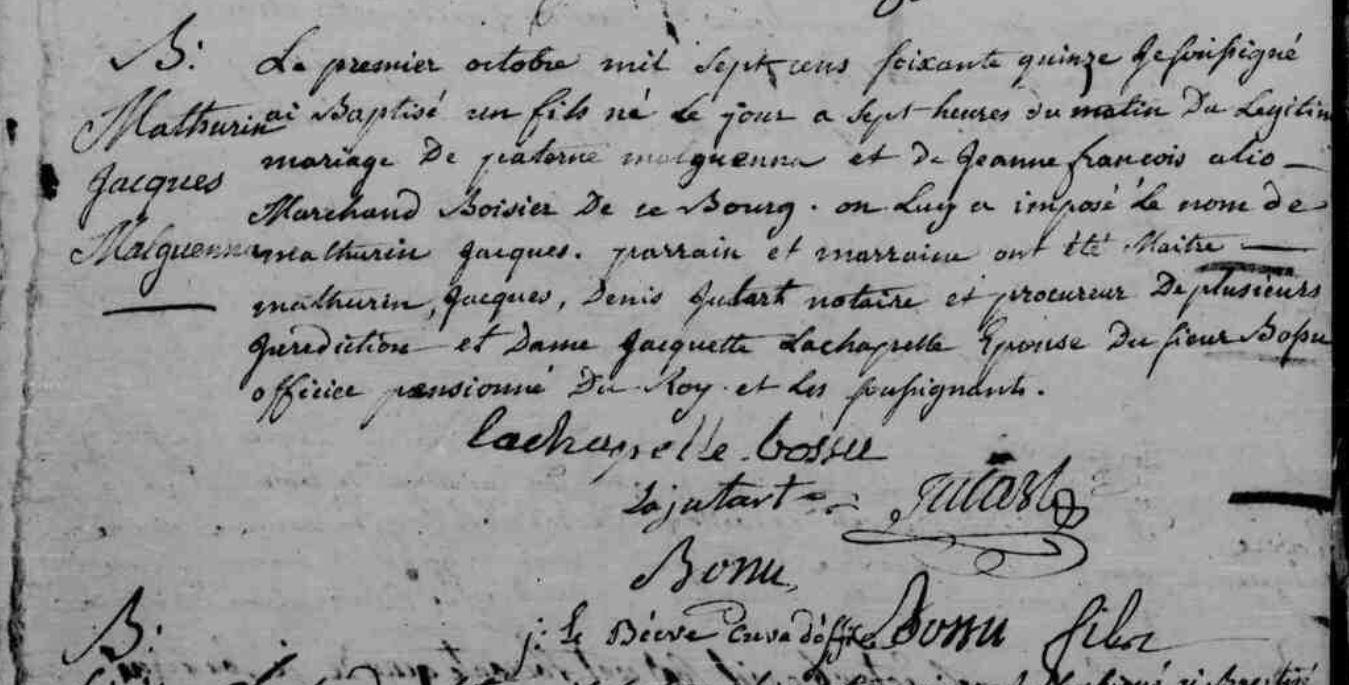 B:
Mathurin
Jacques
Malguenna
Le premier octobre mil sept cens soixante quinze Je soussigné
ai Baptisé un fils né le jour a sept heures du matin Du Legitim
mariage De paterne malguenna et de Jeanne francois alio
Marchand Boisier De ce Bourg. on Luy a imposé le nom de
mathurin jacques. parrain et marraine ont été Maitre
mathurin, Jacques, Denis Jutart notaire et procureur De plusieurs
Jurediction et Dame Jacquette Lachapelle Epouse Du sieur Bossu
officier pensionné Du Roy et les soussignants.
Lachapelle bossu
Lajutart Jutart
Bossu
j: Le Bossu fils
B: